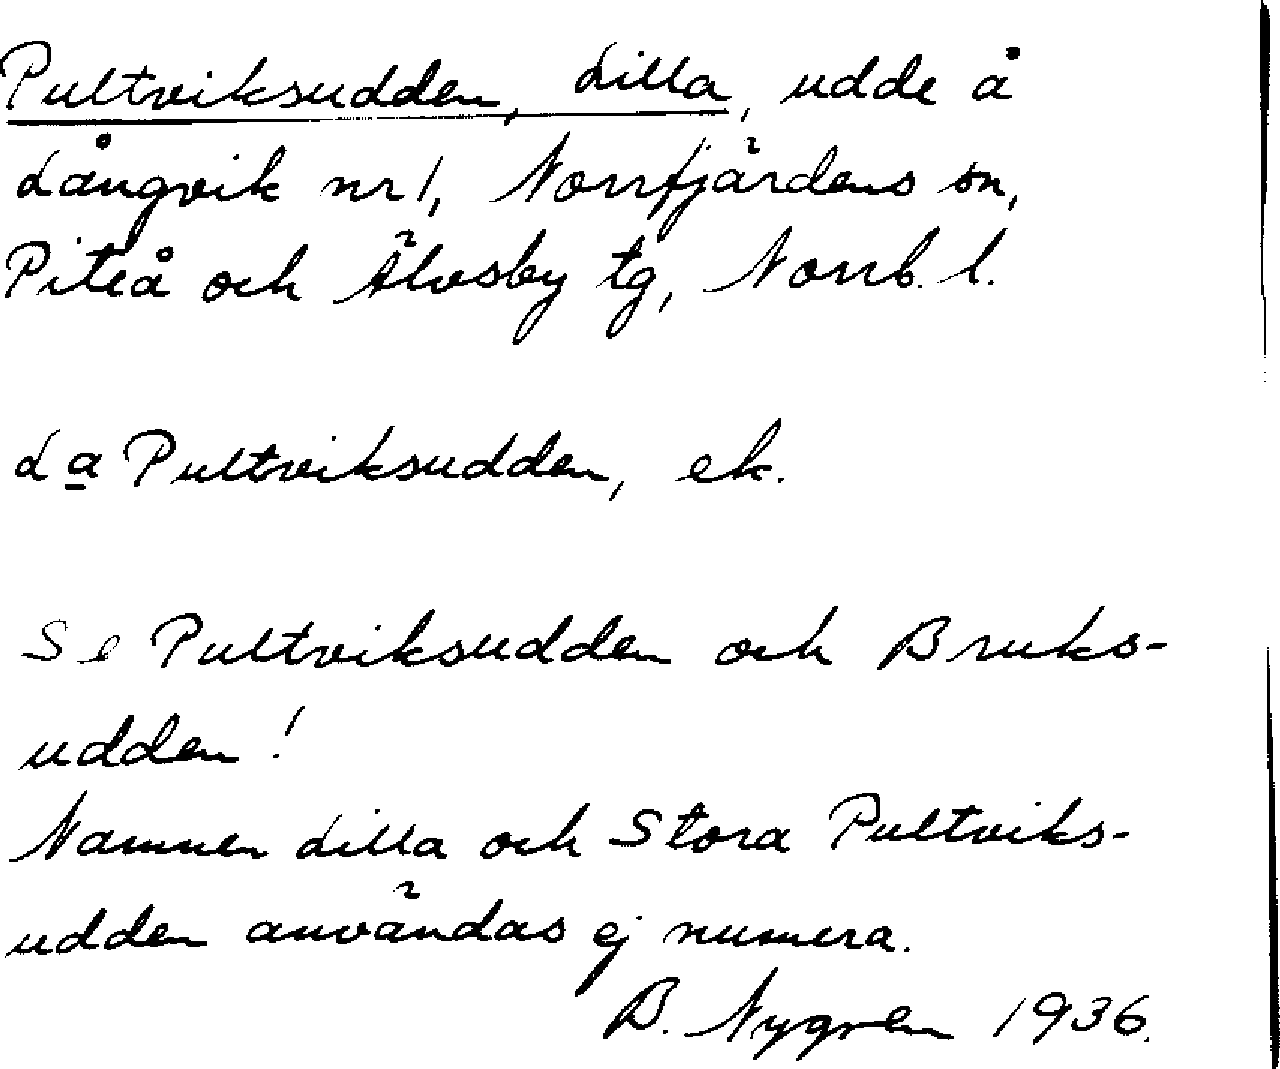 Pultviksudden, Lilla, udde å
Långvik nr 1, Norrfjärdens sn,
Piteå och Älvsby tg, Norrb. l.
La Pultviksudden, ek.
Se Pultviksudden och Bruks-
udden!
Namnen Lilla och Stora Pultviks-
udden användas ej numera.
B. Nygren 1936.